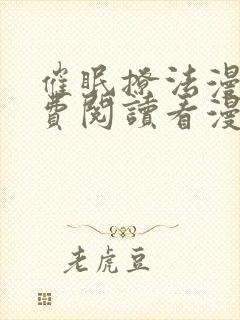 催眠撩法漫
費閱讀看漫
老虎豆